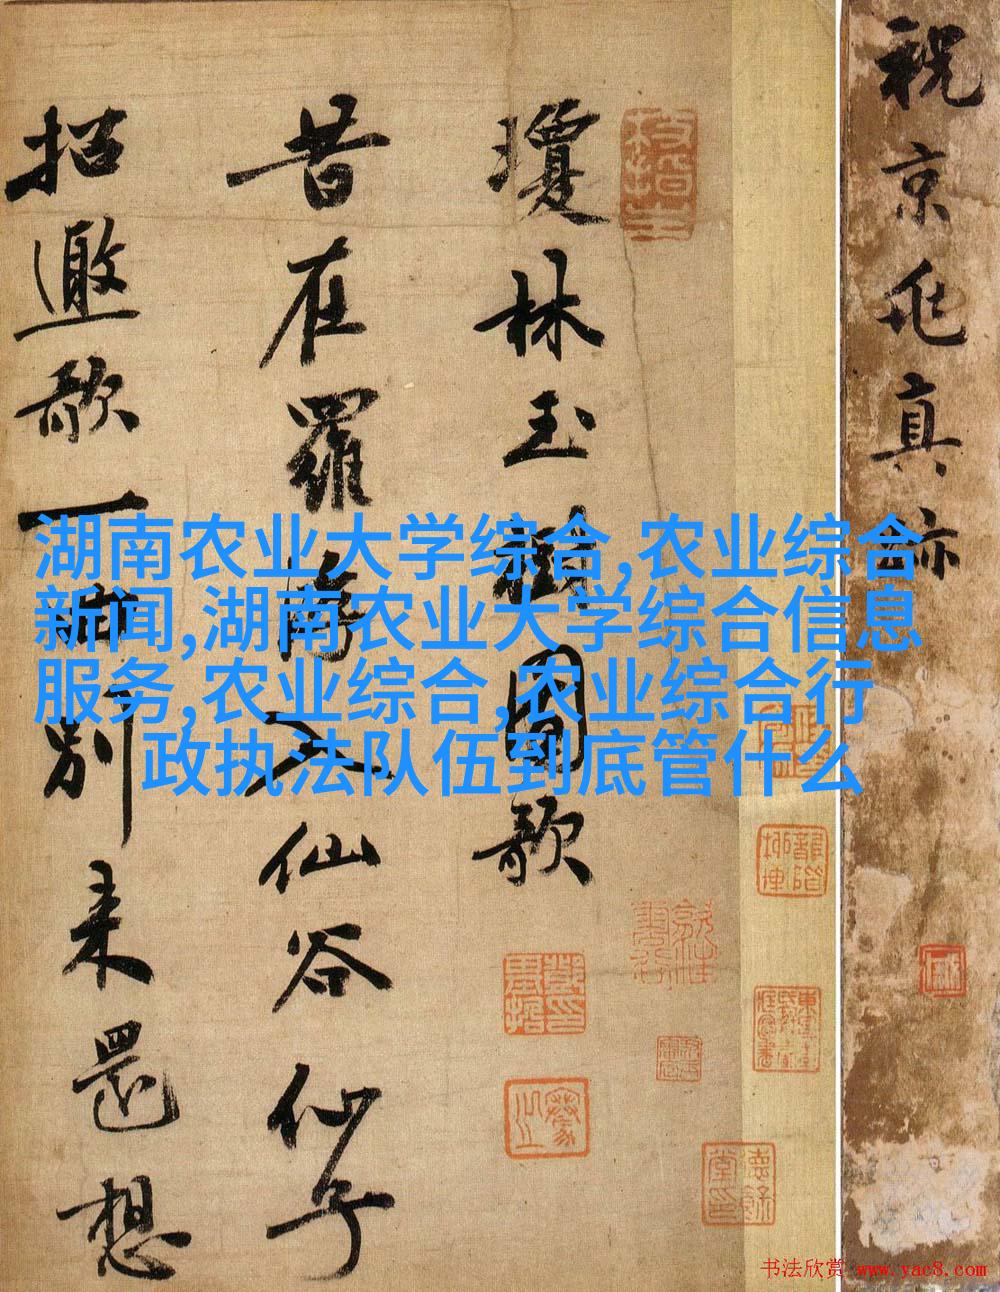 祝京兆真跡
枝指生
瓊林玉樹圖歌
昔在羅浮入仙谷仙子
招邀歌一別来還想
湖南农业大学综合,农业综合
新闻,湖南农业大学综合信息
服务,农业综合,农业综合行
政执法队伍到底管什么
书法欣赏 www.yac8.com